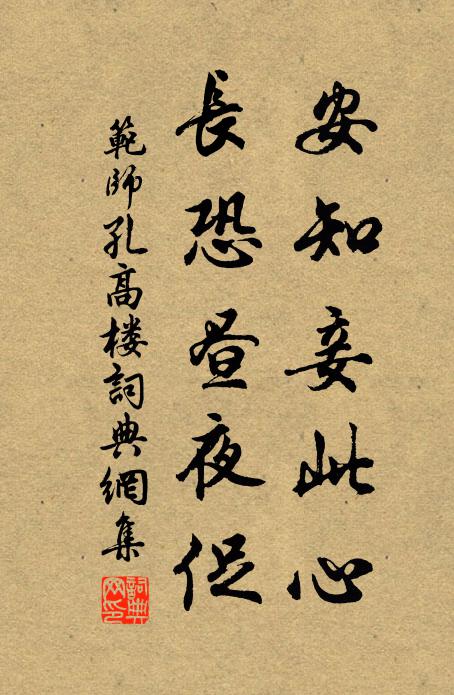 安知妾此心
長恐晝夜促
範師孔高楼詞典網集
詞典网印